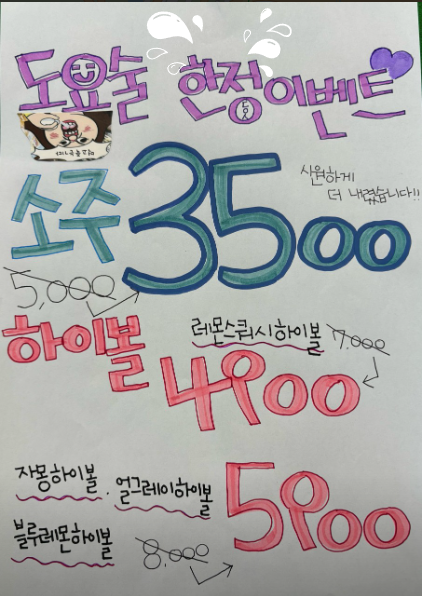 도요술 한정이벤트
소주 3500
시원하게
더 내렸습니다!!
5,000
하이볼
레몬스쿼시하이볼 7.000
4900
자몽하이볼 . 얼그레이하이볼
5900
블루레몬하이볼
8,000